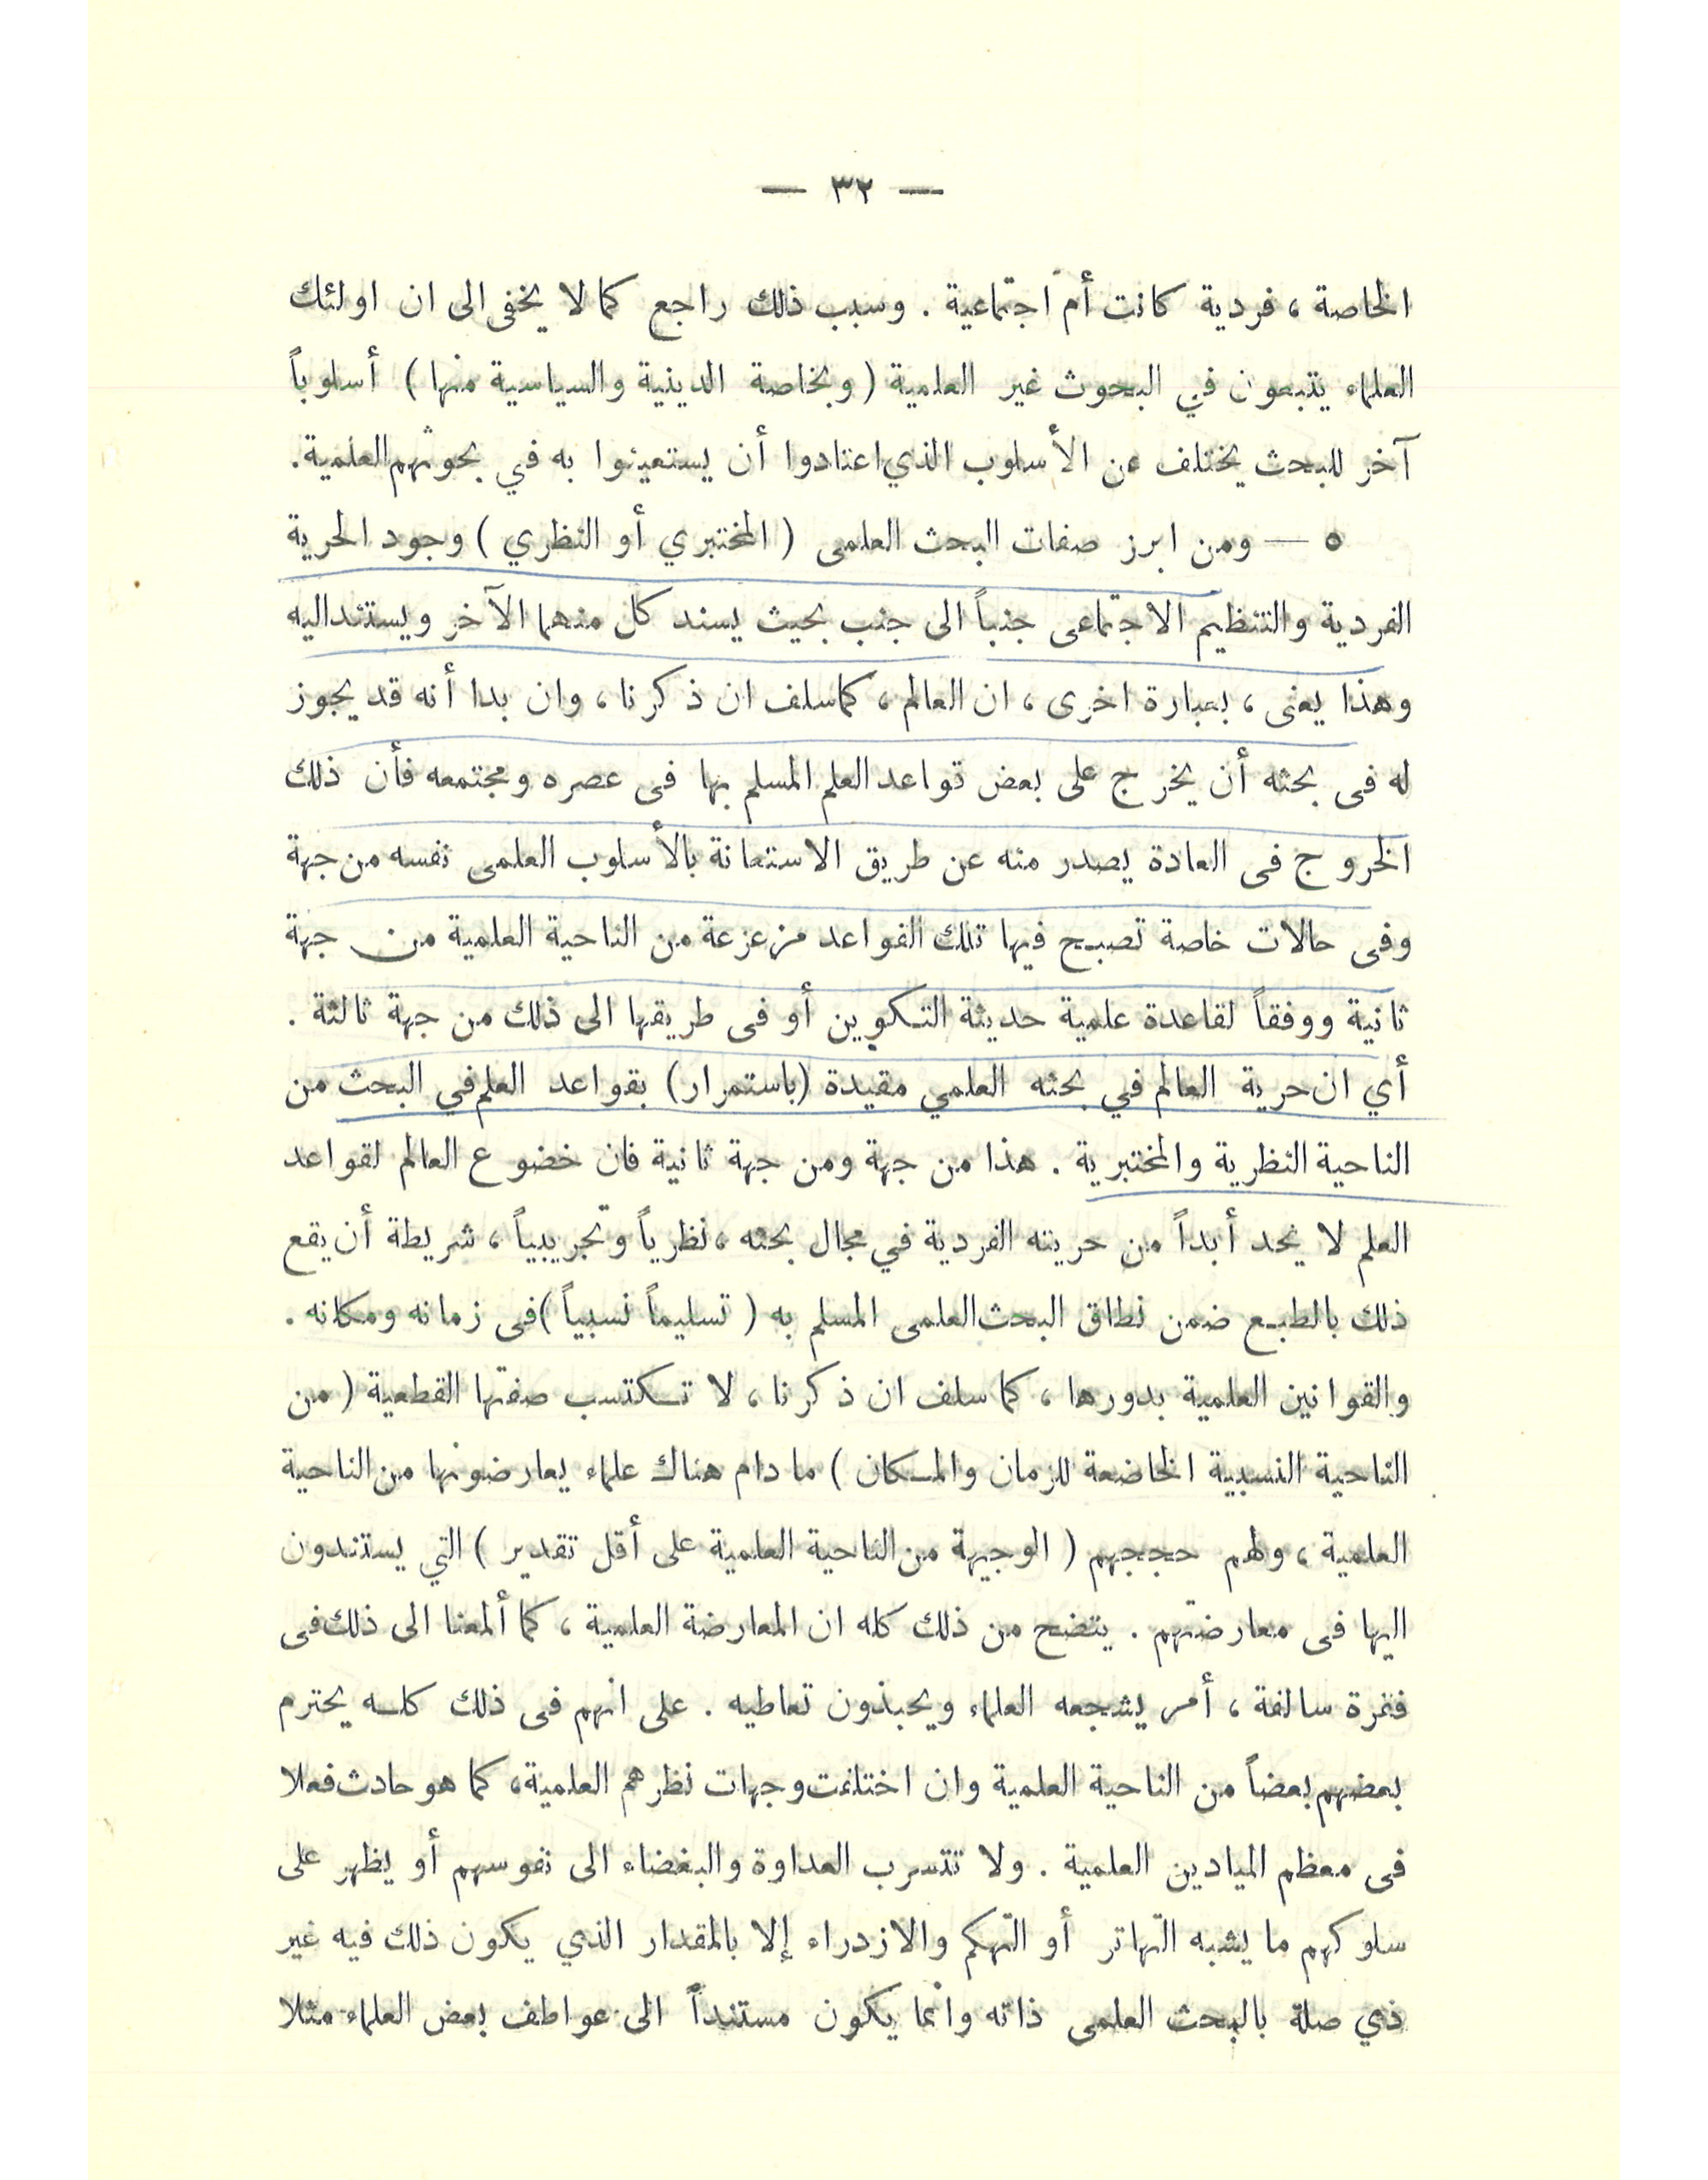 — ٣٢ —
الخاصة ، فردية كانت أم اجتماعية . وسبب ذلك راجع كما لا يخفى الى ان اولئك
العلماء يتبعون في البحوث غير العلمية ( وبخاصة الدينية والسياسية منها ) أسلوباً
آخر للبحث يختلف عن الأسلوب الذي اعتادوا أن يستعينوا به في بحوثهم العلمية .
٥ — ومن ابرز صفات البحث العلمى ( المختبري أو النظري ) وجود الحرية
الفردية والتنظيم الاجتماعى جنباً الى جنب بحيث يسند كل منهما الآخر ويستند اليه
وهذا يعنى ، بعبارة اخرى ، ان العالم ، كما سلف ان ذكرنا ، وان بدا أنه قد يجوز
له فى بحثه أن يخرج على بعض قواعد العلم المسلم بها فى عصره ومجتمعه فأن ذلك
الخروج فى العادة يصدر منه عن طريق الاستعانة بالأسلوب العلمى نفسه من جهة
وفى حالات خاصة تصبح فيها تلك القواعد مزعزعة من الناحية العلمية من جهة
ثانية ووفقاً لقاعدة علمية حديثة التكوين أو فى طريقها الى ذلك من جهة ثالثة .
أي ان حرية العالم في بحثه العلمي مقيدة ( باستمرار ) بقواعد العلم في البحث من
الناحية النظرية والمختبرية . هذا من جهة ومن جهة ثانية فان خضوع العالم لقواعد
العلم لا يحد أبداً من حريته الفردية في مجال بحثه ، نظرياً وتجريبياً ، شريطة أن يقع
ذلك بالطبع ضمن نطاق البحث العلمى المسلم به ( تسليماً نسبياً ) فى زمانه ومكانه .
والقوانين العلمية بدورها ، كما سلف ان ذكرنا ، لا تكتسب صفتها القطعية ( من
الناحية النسبية الخاضعة للزمان والمكان ) ما دام هناك علماء يعارضونها من الناحية
العلمية ، ولهم حججهم ( الوجيهة من الناحية العلمية على أقل تقدير ) التي يستندون
اليها فى معارضتهم . يتضح من ذلك كله ان المعارضة العلمية ، كما ألمعنا الى ذلك فى
فقرة سالفة ، أمر يشجعه العلماء ويحبذون تعاطيه . على انهم فى ذلك كله يحترم
بعضهم بعضاً من الناحية العلمية وان اختلفت وجهات نظرهم العلمية ، كما هو حادث فعلا
فى معظم الميادين العلمية . ولا تتسرب العداوة والبغضاء الى نفوسهم أو يظهر على
سلوكهم ما يشبه التهاتر أو التهكم والازدراء إلا بالمقدار الذي يكون ذلك فيه غير
ذي صلة بالبحث العلمى ذاته وانما يكون مستنداً الى عواطف بعض العلماء مثلا